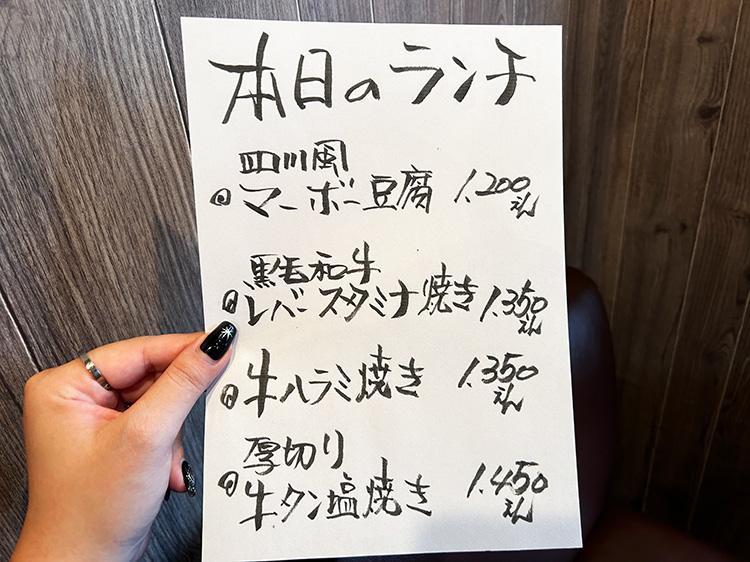 本日のランチ
四川風
マーボー豆腐 1.200えん
黒毛和牛
レバースタミナ焼き 1.350えん
牛ハラミ焼き 1.350えん
厚切り
牛タン塩焼き 1.450えん